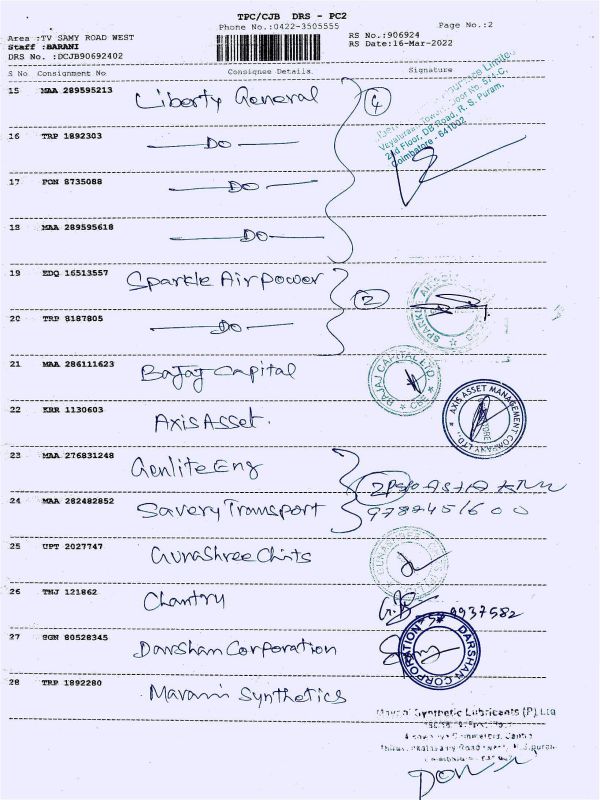 TPC/CJB DRS - PC2
Phone No.:0422-3505555
Page No.:2
Area :TV SAMY ROAD WEST
Staff :BARANI
DRS No. :DCJB90692402
RS No.:906924
RS Date:16-Mar-2022
S No Consignment No Consignee Details Signature
15 MAA 289595213 Liberty General 4
2nd Floor, DB Road, R. S. Puram,
Coimbatore - 641002
16 TRP 1892303 DO
17 PON 8735088 DO
18 MAA 289595618 DO
19 EDQ 16513557 Sparkle Airpower 2
20 TRP 8187805 DO
21 MAA 286111623 Bajaj Capital
BAJAJ CAPITAL LTD
CBE
22 KRR 1130603 Axis Asset.
AXIS ASSET MANAGEMENT COMPANY LTD.
23 MAA 276831248 Genlite Eng
24 MAA 282482852 Savery Transport
25 UPT 2027747 GunaShree Chits
26 TNJ 121862 Chantry
9937582
27 GGN 80528345 Darshan Corporation
DARSHAN CORPORATION
28 TRP 1892280 Marami Synthetics
Synthetic Lubricants (P) Ltd